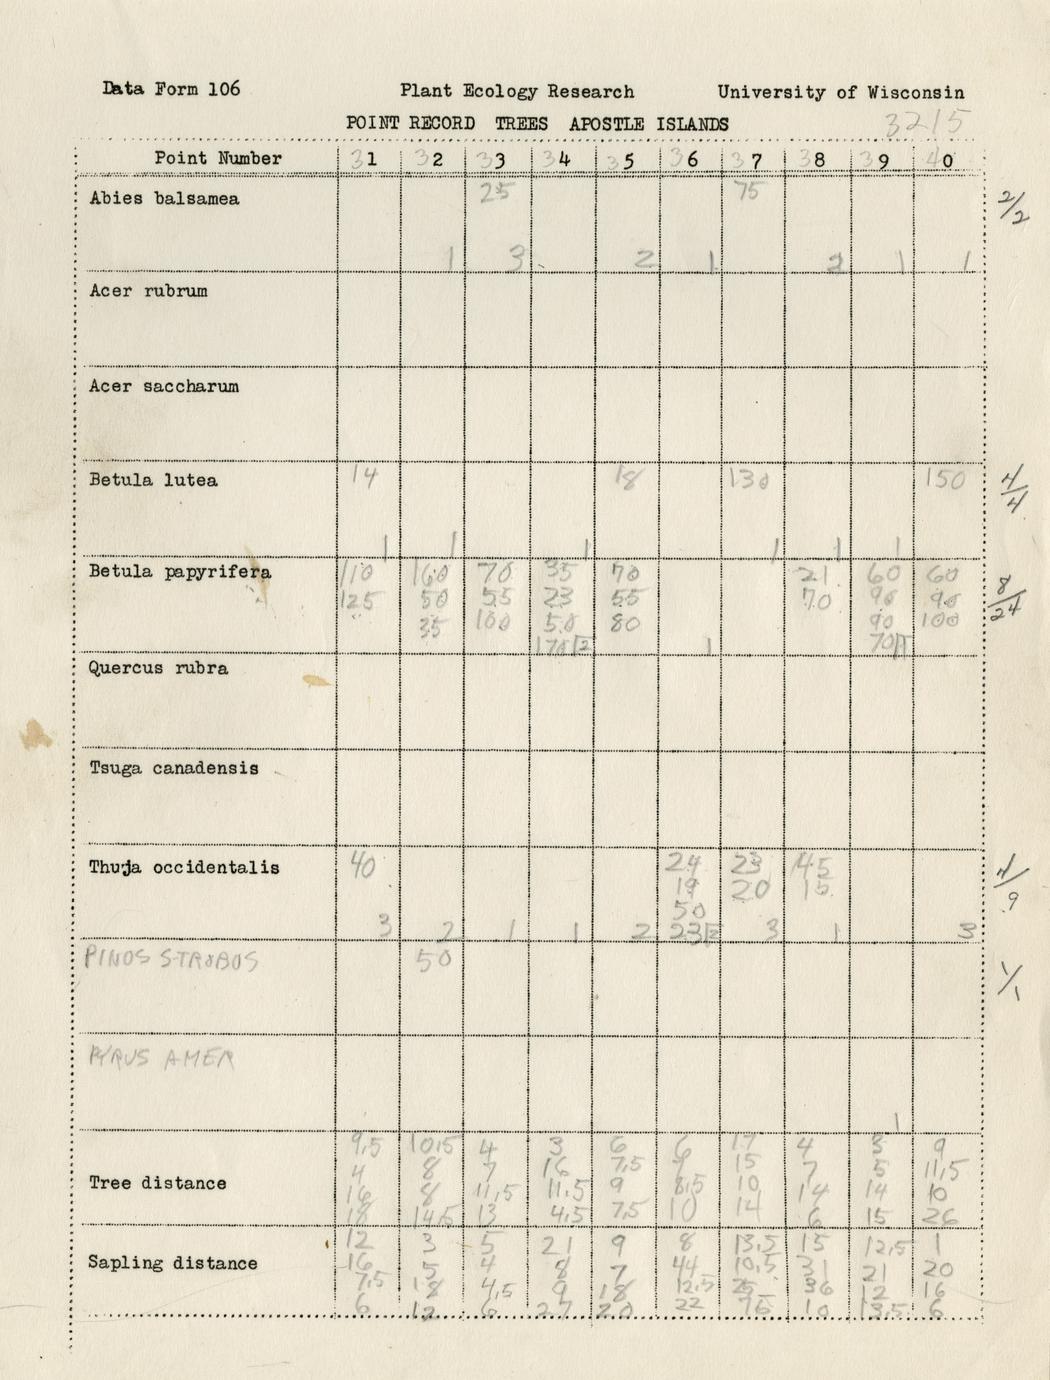 Data Form 106 Plant Ecology Research University of Wisconsin
POINT RECORD TREES APOSTLE ISLANDS 3215
Point Number 31 32 33 34 35 36 37 38 39 40
Abies balsamea 25 75 2/2
1 3 2 1 2 1 1
Acer rubrum
Acer saccharum
Betula lutea 14 18 130 150 4/4
1 1 1 1 1 1
Betula papyrifera 110 160 70 35 70 21 60 60 8/24
125 50 55 23 55 70 90 90
35 100 50 80 90 100
170 2 1 70 1
Quercus rubra
Tsuga canadensis
Thuja occidentalis 40 24 23 45 4/9
19 20 15
50
3 2 1 1 2 23 2 3 1 3
PINOS STROBOS 50 1/1
PYRUS AMER
1
9,5 10,5 4 3 6 6 17 4 3 9
4 8 7 16 7,5 15 7 5 11,5
Tree distance 16 8 11,5 11.5 9 8,5 10 14 14 10
18 14,5 13 4,5 7,5 10 14 6 15 26
12 3 5 21 9 8 13,5 15 12,5 1
Sapling distance 16 5 4 8 7 44 10,5 31 21 20
7,5 18 4,5 9 18 12,5 25 36 12 16
6 12 6 27 20 22 76 10 13,5 6